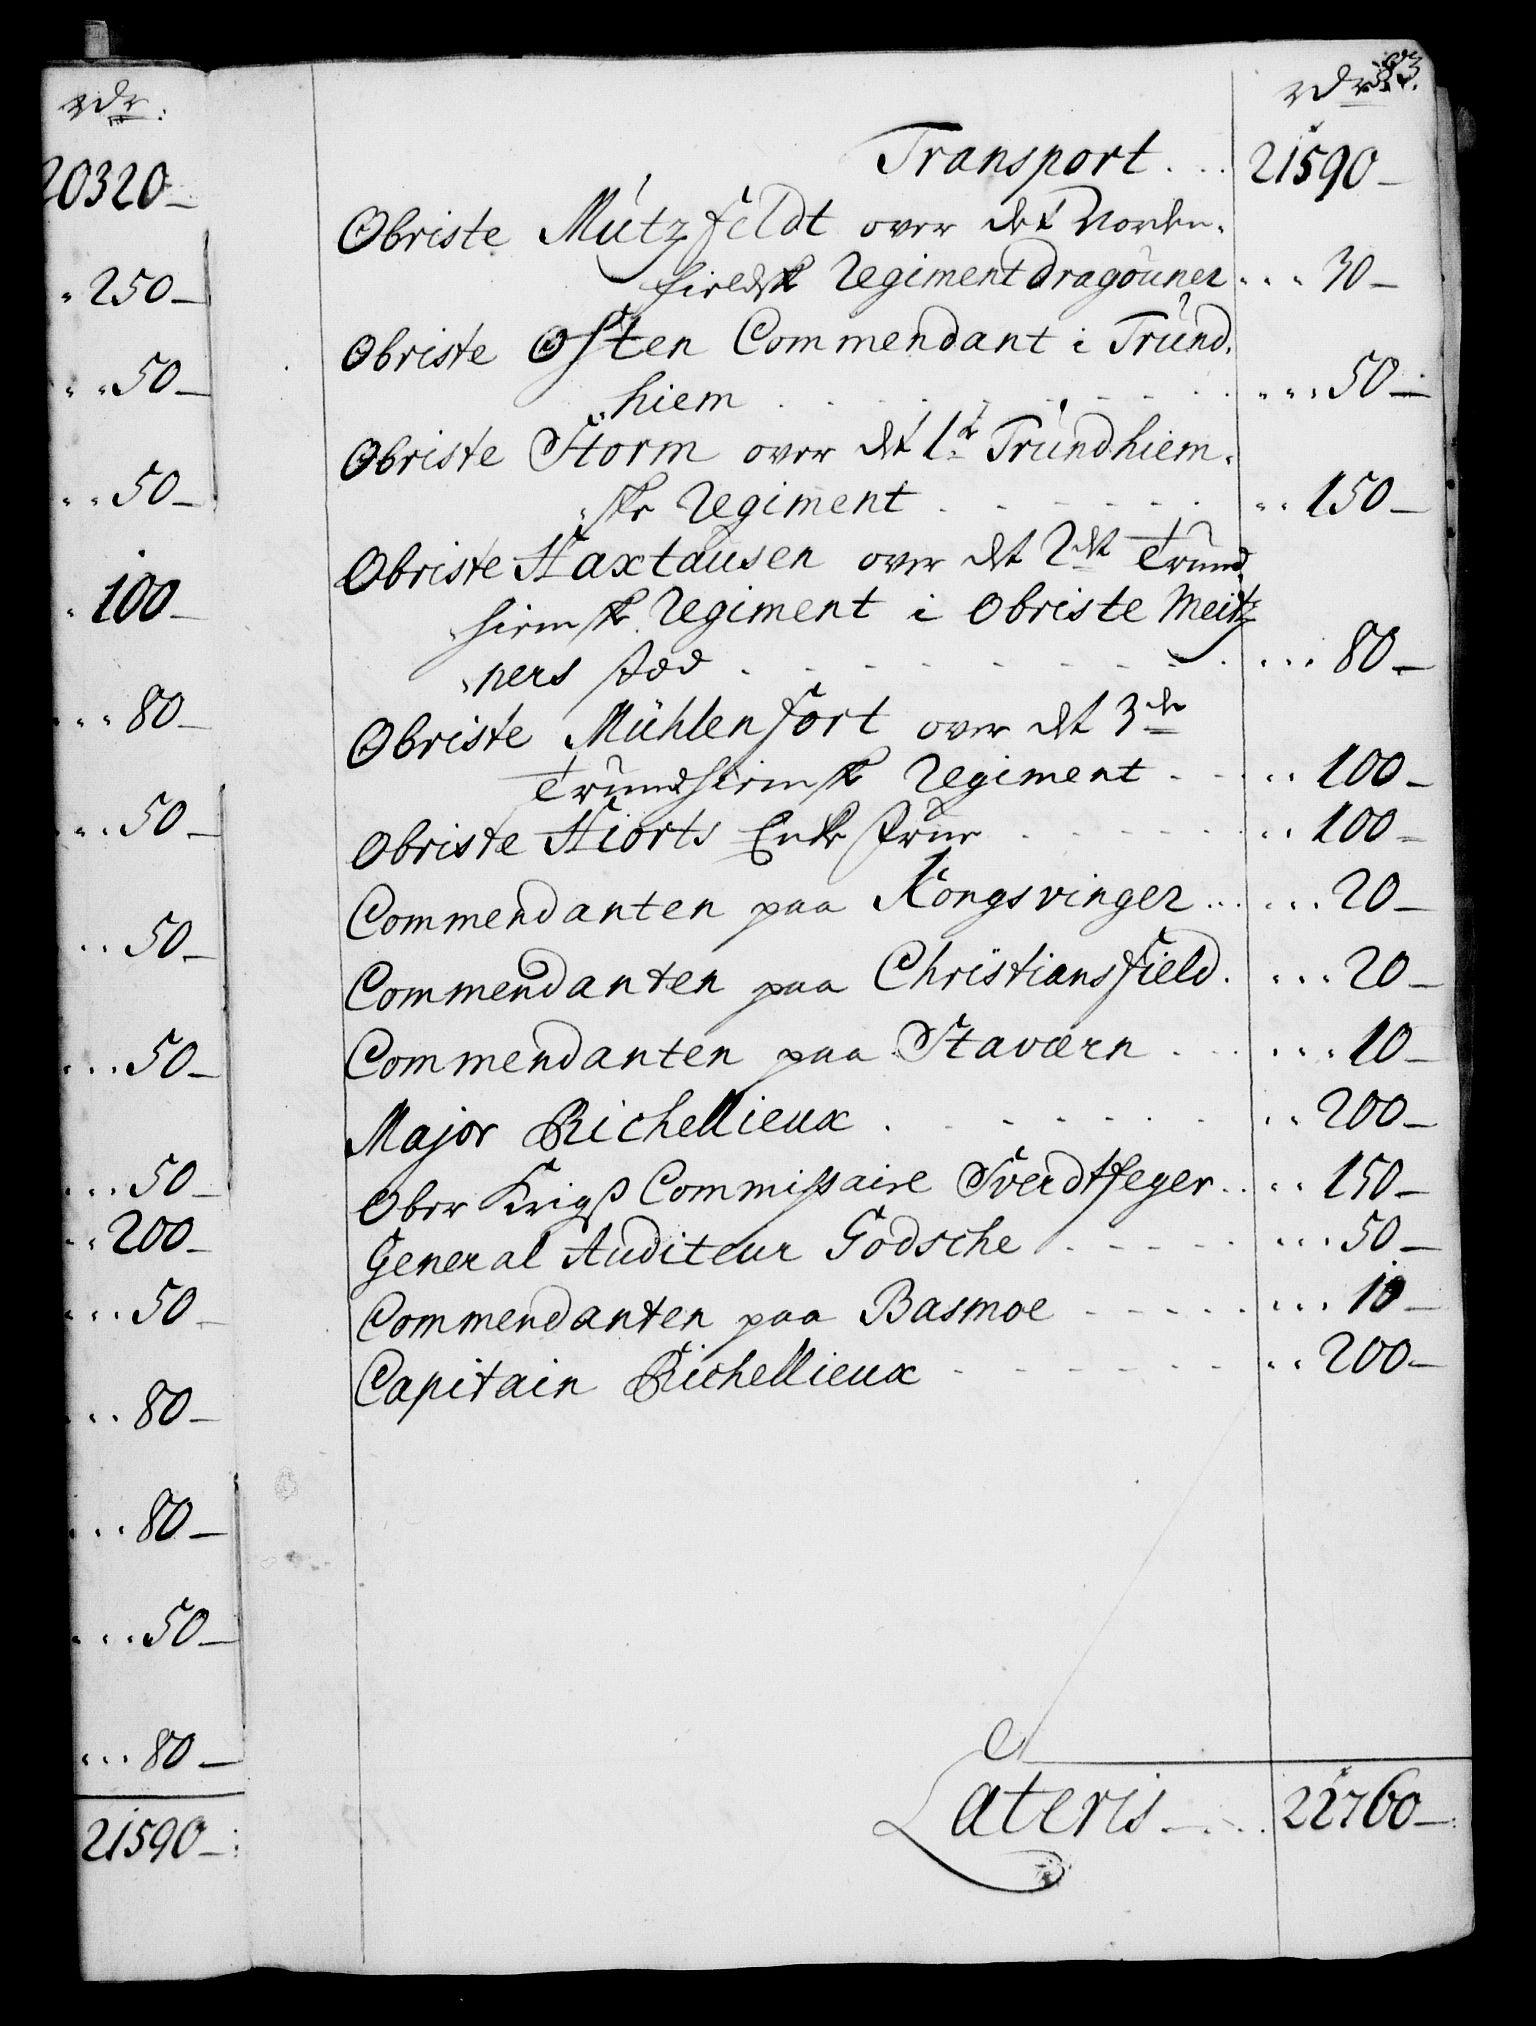 rdr:
20320-
250-
50-
50-
100-
80-
50-
50-
50-
50-
200-
50-
80-
80-
50-
80-
21590-
rdr:
Transport 21590-
Obriste Mützfeldt over det Norden-
fieldske Regiment dragouner 30-
Obriste Osten Commendant i Trund-
hiem 50-
Obriste Storm over det 1te Trundhiem-
ske Regiment 150-
Obriste Haxtausen over det 2det Trund-
hiemske Regiment i Obriste Meitz-
ners stæd 80-
Obriste Mühlenfort over det 3de
Trundhiemske Regiment 100-
Obriste Hiorts Enke Frue 100-
Commendanten paa Kongsvinger 20-
Commendanten paa Christiansfield 20-
Commendanten paa Staværn 10-
Major Richellieux 200-
Ober Krigß Commissaire Sverdtfeger 150-
General Auditeur Godsche 50-
Commendanten paa Basmoe 10-
Capitain Richellieux 200-
Lateris 22760-